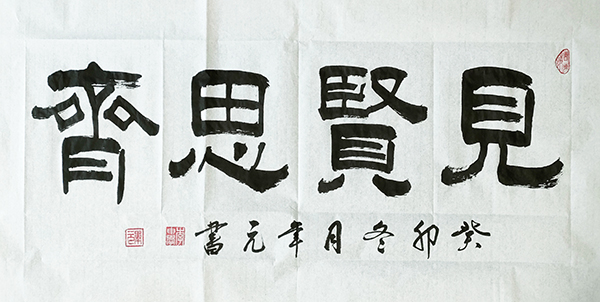 見賢思齊
癸卯冬月年元書